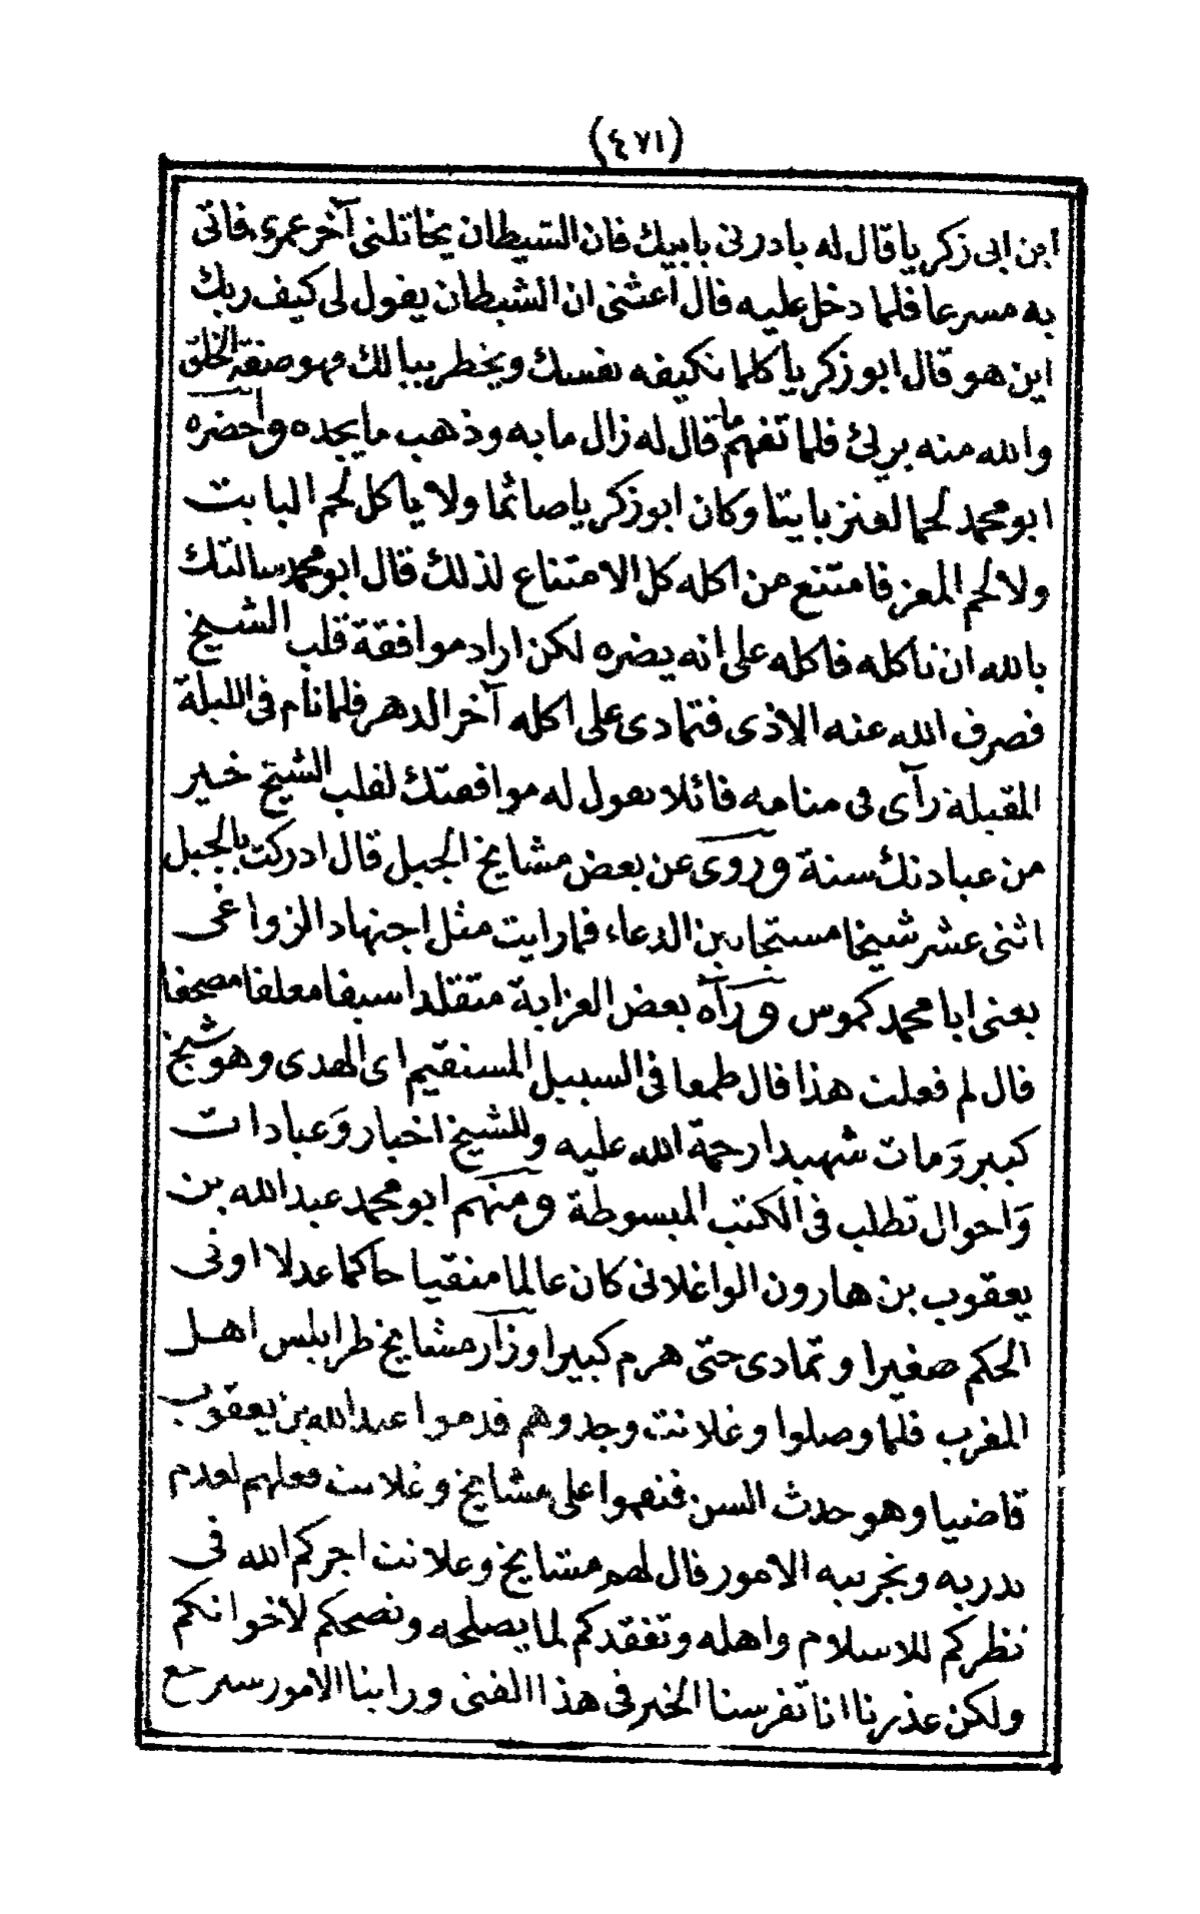 (٤٧١)
ابن ابى زكرياقال له بادرنى بابيك فان الشيطان يخاتلنى آخر عمرى فاتى
به مسرعا فلما دخل عليه قال اغثنى ان الشيطان يقول لى كيف ربك
اين هو قال ابو زكرياء كلما تكيفه نفسك ويخطر ببالك فهو صفة الخلق
والله منه برئ فلما تفهم ما قال له زال ما به وذهب ما يجده واحضره
ابو محمد لحما لعنز بايتا وكان ابو زكرياء صائما ولا ياكل لحم البايت
ولا لحم المعز فامتنع من اكله كل الامتناع لذلك قال ابو محمد سالتك
بالله ان تاكله فاكله على انه يضره لكن اراد موافقة قلب الشيخ
فصرف الله عنه الاذى فتمادى على اكله آخر الدهر فلما نام فى الليلة
المقبلة رآى فى منامه قائلا يقول له موافقتك لقلب الشيخ خير
من عبادتك سنة وروى عن بعض مشايخ الجبل قال ادركت بالجبل
اثنى عشر شيخا مستجابين الدعاء فما رايت مثل اجتهاد الزواغى
يعنى ابا محمد كموس ورآه بعض العزابة متقلدا سيفا معلقا مصحفا
قال لم فعلت هذا قال طمعا فى السبيل المستقيم اى الهدى وهو شيخ
كبير ومات شهيدا رحمة الله عليه وللشيخ اخبار وعبادات
واحوال تطلب فى الكتب المبسوطة ومنهم ابو محمد عبد الله بن
يعقوب بن هارون الواغلانى كان عالما متقيا حاكما عدلا اوتى
الحكم صغيرا وتمادى حتى هرم كبيرا وزار مشايخ طرابلس اهل
المغرب فلما وصلوا وغلانت وجدوهم قدموا عبد الله بن يعقوب
قاضيا وهو حدث السن فنقموا على مشايخ وغلانت فعلهم لعدم
تدربه وتجريبه الامور قال لهم مشايخ وغلانت اجركم الله فى
نظركم للاسلام واهله وتفقدكم لما يصلحه ونصحكم لأخوانكم
ولكن عذرنا انا تفرسنا الخير فى هذا الفتى وراينا الامور سرع